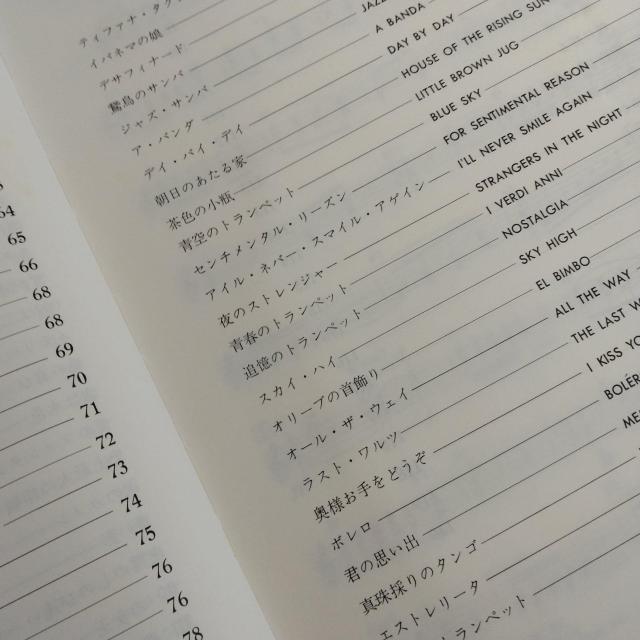 64
65
66
68
68
69
70
71
72
73
74
75
76
76
78
イパネマの娘
デサフィナード
鷲鳥のサンバ
ジャズ・サンバ JAZZ
ア・バンダ A BANDA
デイ・バイ・デイ DAY BY DAY
朝日のあたる家 HOUSE OF THE RISING SUN
茶色の小瓶 LITTLE BROWN JUG
青空のトランペット BLUE SKY
センチメンタル・リーズン FOR SENTIMENTAL REASON
アイル・ネバー・スマイル・アゲイン I'LL NEVER SMILE AGAIN
夜のストレンジャー STRANGERS IN THE NIGHT
青春のトランペット I VERDI ANNI
追憶のトランペット NOSTALGIA
スカイ・ハイ SKY HIGH
オリーブの首飾り EL BIMBO
オール・ザ・ウェイ ALL THE WAY
ラスト・ワルツ THE LAST
奥様お手をどうぞ I KISS
ボレロ
君の思い出
真珠採りのタンゴ
エストレリータ
トランペット